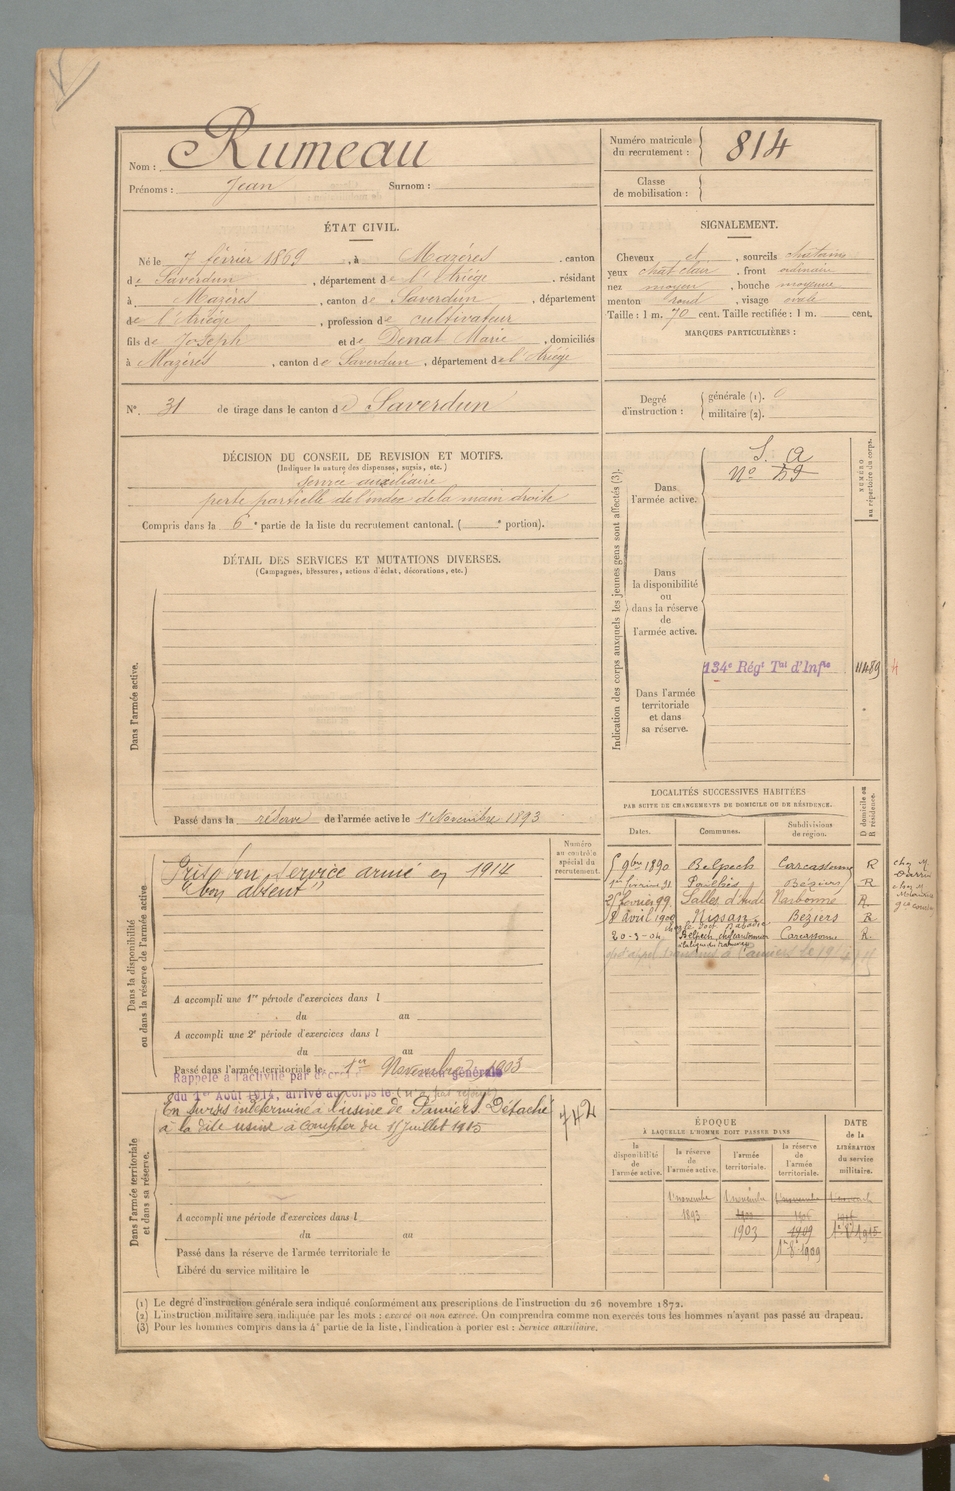 Nom : Rumeau
Prénoms : Jean Surnom :
Numéro matricule du recrutement : 814
Classe de mobilisation :
ÉTAT CIVIL.
Né le 7 février 1869, à Mazères, canton
de Saverdun, département de l'Ariège, résidant
à Mazères, canton de Saverdun, département
de l'Ariège, profession de cultivateur
fils de Joseph et de Denat Marie, domiciliés
à Mazères, canton de Saverdun, département de l'Ariège
SIGNALEMENT.
Cheveux et, sourcils chatains
yeux chat clair, front ordinaire
nez moyen, bouche moyenne
menton rond, visage ovale
Taille : 1 m. 70 cent. Taille rectifiée : 1 m. cent.
MARQUES PARTICULIÈRES :
N° 31 de tirage dans le canton de Saverdun
Degré d'instruction :
générale (1). 0
militaire (2).
DÉCISION DU CONSEIL DE REVISION ET MOTIFS.
(Indiquer la nature des dispenses, sursis, etc.)
service auxiliaire
perte partielle de l'index de la main droite
Compris dans la 6e partie de la liste du recrutement cantonal. ( e portion).
DÉTAIL DES SERVICES ET MUTATIONS DIVERSES.
(Campagnes, blessures, actions d'éclat, décorations, etc.)
Dans l'armée active.
Passé dans la réserve de l'armée active le 1er Novembre 1893
Indication des corps auxquels les jeunes gens sont affectés (3).
NUMÉRO au répertoire du corps.
Dans l'armée active.
S. A
N° 59
Dans la disponibilité ou dans la réserve de l'armée active.
134e Régt Tal d'Infie 11489
Dans l'armée territoriale et dans sa réserve.
Dans la disponibilité ou dans la réserve de l'armée active.
Numéro au contrôle spécial du recrutement.
Pris bon Service armé en 1914
"bon absent"
A accompli une 1re période d'exercices dans l
du au
A accompli une 2e période d'exercices dans l
du au
Passé dans l'armée territoriale le 1er Novembre 1903
Rappelé à l'activité par décret générale
du 1er Août 1914, arrivé au corps le
Dans l'armée territoriale et dans sa réserve.
En sursis indéterminé à l'usine de Pamiers Détaché
à la dite usine à compter du 15 juillet 1915
742
A accompli une période d'exercices dans l
du au
Passé dans la réserve de l'armée territoriale le
Libéré du service militaire le
LOCALITÉS SUCCESSIVES HABITÉES
PAR SUITE DE CHANGEMENTS DE DOMICILE OU DE RÉSIDENCE.
Dates. Communes. Subdivisions de région. D domicile ou R résidence.
5 9bre 1890 Belpech Carcassonne R
Béziers R
25 février 99 Salles d'Aude Narbonne R
8 Avril 1900 Nissan Béziers R
20-3-04 Belpech Carcassonne R
ÉPOQUE
À LAQUELLE L'HOMME DOIT PASSER DANS
la disponibilité de l'armée active.
la réserve de l'armée active.
l'armée territoriale.
la réserve de l'armée territoriale.
DATE de la LIBÉRATION du service militaire.
1er novembre 1893
1er novembre 1903
1909
1er 8bre 1909
1er 8bre 1915
(1) Le degré d'instruction générale sera indiqué conformément aux prescriptions de l'instruction du 26 novembre 1872.
(2) L'instruction militaire sera indiquée par les mots : exercé ou non exercé. On comprendra comme non exercés tous les hommes n'ayant pas passé au drapeau.
(3) Pour les hommes compris dans la 4e partie de la liste, l'indication à porter est : Service auxiliaire.